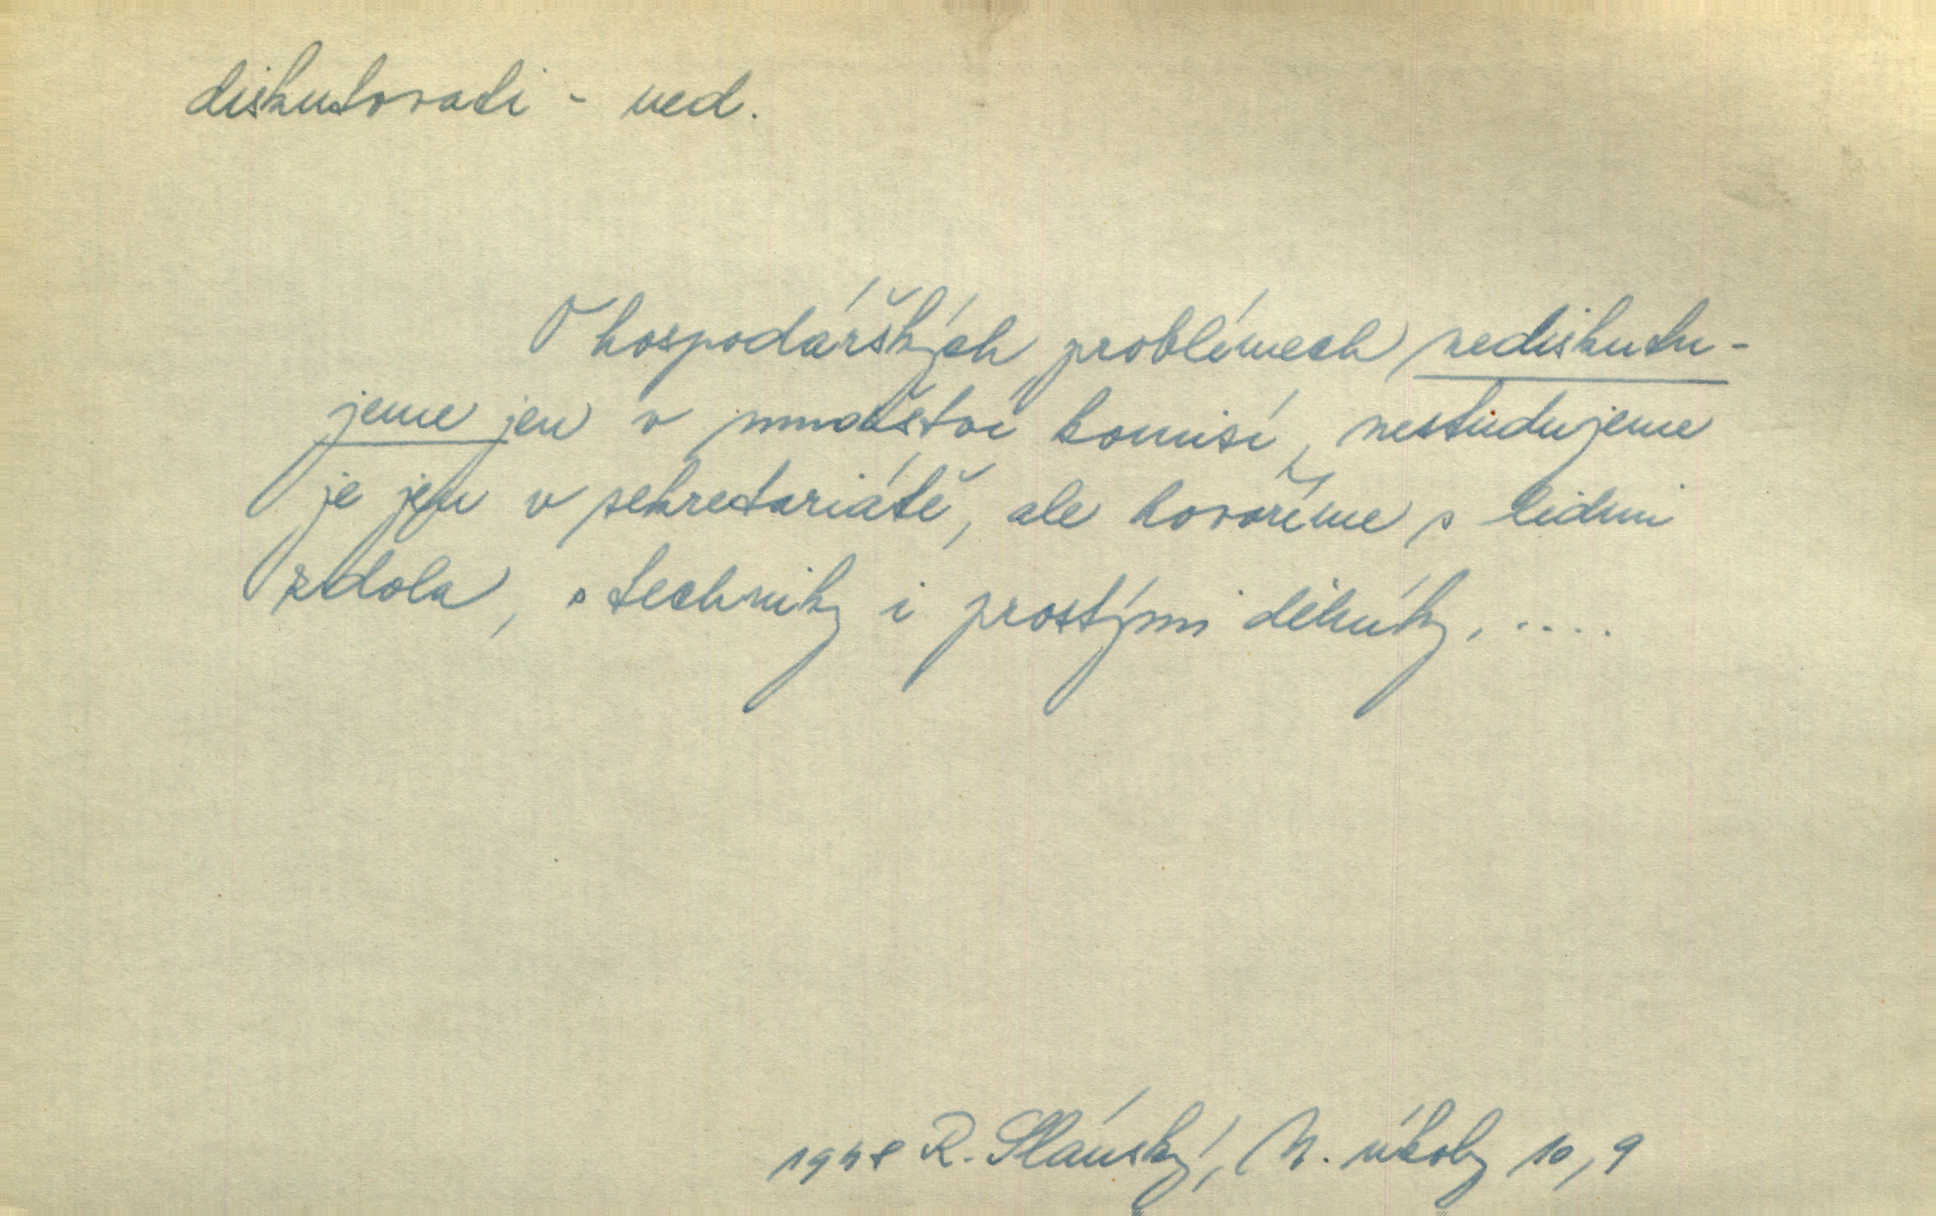 diskutovati - ned.
O hospodářských problémech nediskutu-
jeme jen v množství komisí, nestudujeme
je jen v sekretariátě, ale hovoříme s lidmi
zdola, s techniky i prostými dělníky, ....
1948 R. Slánský, N. úkoly 10, 9